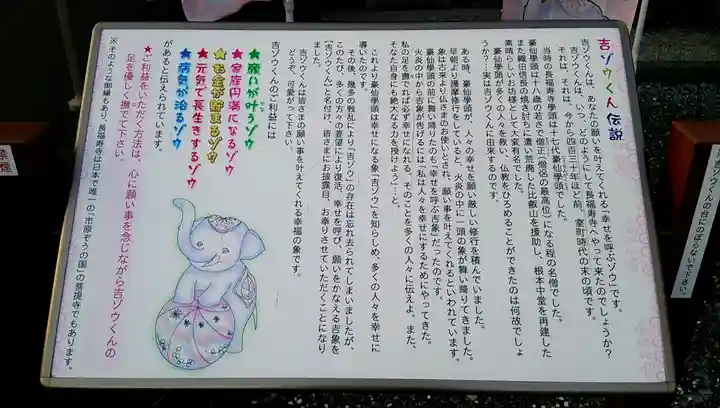 吉ゾウくん伝説
吉ゾウくんは、あなたの願いを叶えてくれる「幸せを呼ぶゾウ」です。
吉ゾウくんは、いつ、どのようにして長福寿寺へやって来たのでしょうか?
それは、それは、今から四百三十年ほど前、室町時代の末の頃です。
当時の長福寿寺學頭は十七代豪仙學頭でした。
豪仙學頭は十八歳の若さで僧正(僧侶の最高位)になる程の名僧でした。
また織田信長の焼き討ちに遭い荒廃した比叡山を援助し、根本中堂を再建した
素晴らしいお坊様として大変有名でした。
豪仙學頭が多くの人々を救い、仏教をひろめることができたのは何故でしょ
うか?…実は吉ゾウくんに由来するのです。
ある時、豪仙學頭が、人々の幸せを願い厳しい修行を積んでいました。
早朝より護摩修行をしていると、火炎の中に一頭の象が舞い降りてきました。
象は古来より仏さまのお使いとされ、願い事を叶えてくれるといわれています。
豪仙學頭の前に舞い降りたのも「幸せを呼ぶ吉象」だったのです。
火炎の中から吉象が告げるには「私は人々を幸せにするためにやってきた。
私の足を撫でれば必ず幸せになれる。そのことを多くの人々に伝えよ。また、
そなた自身にも絶大なる力を授けよう」…と。
これより豪仙學頭は幸せになる象「吉ゾウ」を知らしめ、多くの人々を幸せに
導いたのです。
その後、幾多の戦乱により「吉ゾウ」の存在は忘れ去られてしまいましたが、
このたび、多くの方々の要望により復活、幸せを呼び、願いをかなえる吉象を
【吉ゾウくん】と名付け、皆さまにお披露目、お奉りさせていただくことになり
ました。
吉ゾウくんは皆さまの願い事を叶えてくれる幸福の象です。
どうぞ、可愛がって下さい。
【吉ゾウくんのご利益には
★願いが叶うゾウ
★家庭円満になるゾウ
★お金が貯まるゾウ
★元気で長生きするゾウ
★病気が治るゾウ
があると伝えられています。
★ご利益をいただく方法は、心に願い事を念じながら吉ゾウくんの
足を優しく撫でて下さい。
※そのような御縁もあり、長福寿寺は日本で唯一の「市原ぞうの国」の菩提寺でもあります。